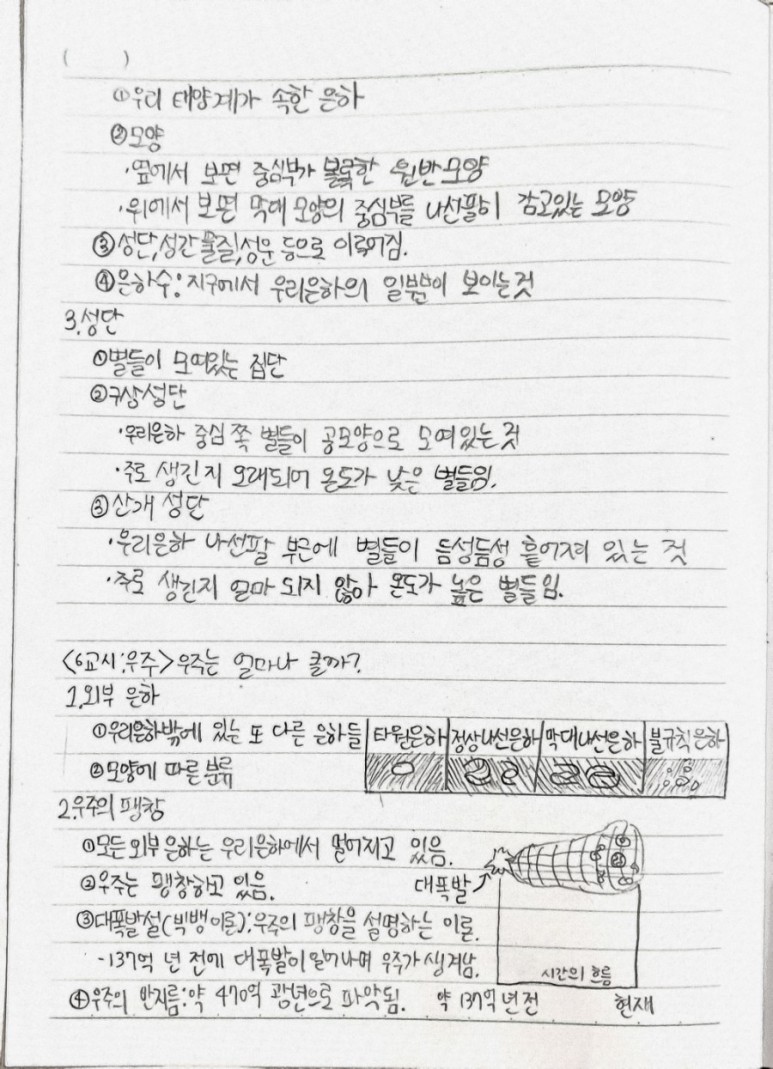 ( )
①우리 태양계가 속한 은하
②모양
·옆에서 보면 중심부가 볼록한 원반모양
·위에서 보면 막대 모양의 중심부를 나선팔이 감고있는 모양
③성단,성간물질,성운 등으로 이루어짐.
④은하수:지구에서 우리은하의 일부분이 보이는것
3.성단
①별들이 모여있는 집단
②구상성단
·우리은하 중심 쪽 별들이 공모양으로 모여있는것
·주로 생긴지 오래되어 온도가 낮은 별들임.
③산개 성단
·우리은하 나선팔 부근에 별들이 듬성듬성 흩어져 있는 것
·주로 생긴지 얼마 되지 않아 온도가 높은 별들임.
<6교시:우주>우주는 얼마나 클까?
1.외부 은하
①우리은하밖에 있는 또 다른 은하들
타원은하 정상나선은하 막대나선은하 불규칙은하
②모양에 따른 분류
2.우주의 팽창
①모든 외부은하는 우리은하에서 멀어지고 있음.
②우주는 팽창하고 있음.
대폭발
③대폭발설(빅뱅이론):우주의 팽창을 설명하는 이론.
-137억 년 전에 대폭발이 일어나며 우주가 생겨남.
시간의 흐름
④우주의 반지름:약 470억 광년으로 파악됨.
약 137억 년 전 현재